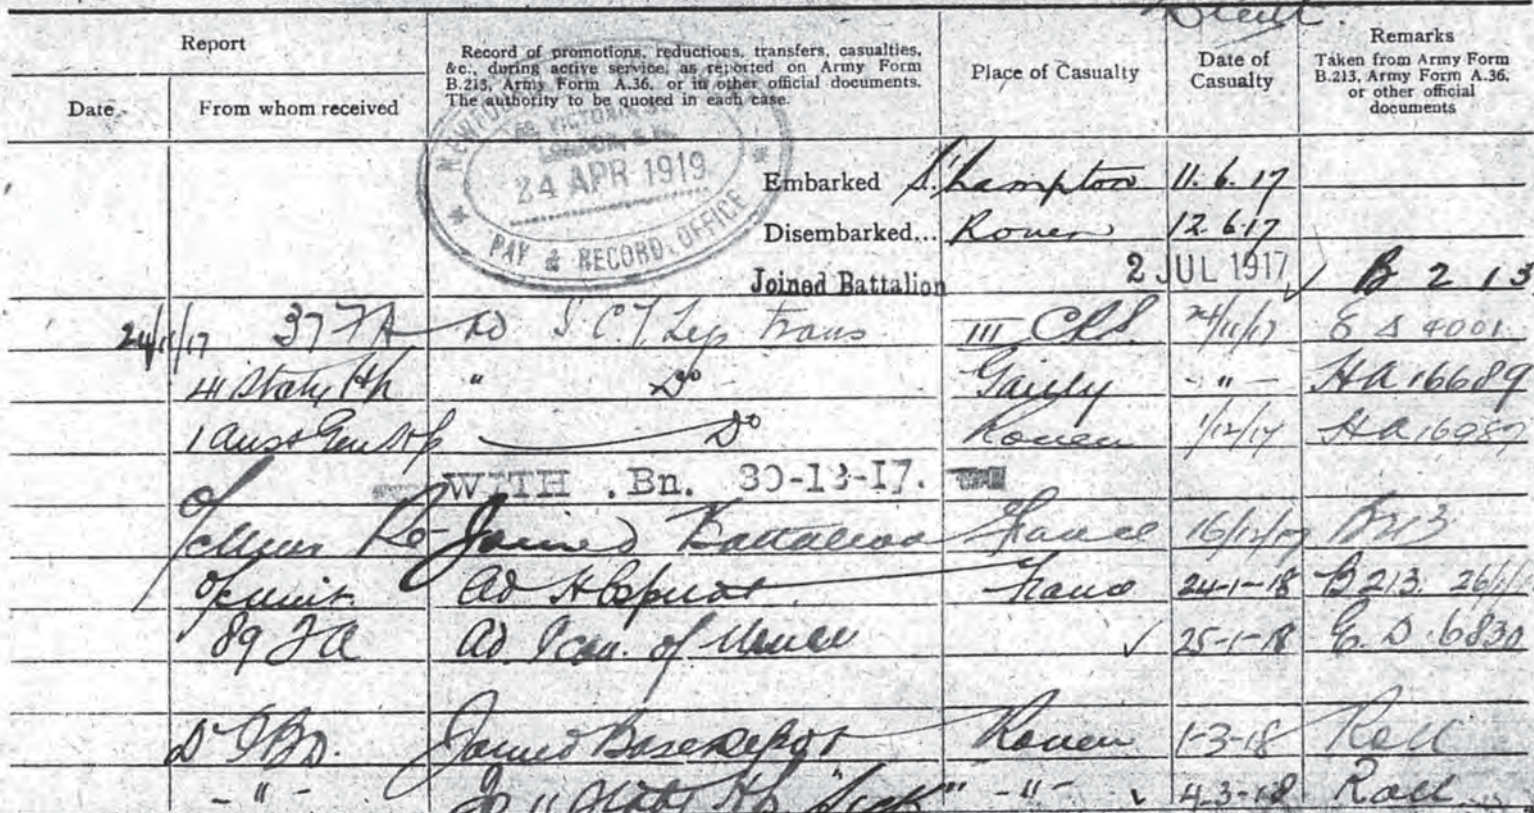 Report
Record of promotions, reductions, transfers, casualties,
&c., during active service, as reported on Army Form
B.213, Army Form A.36, or in other official documents.
The authority to be quoted in each case.
Place of Casualty
Date of
Casualty
Remarks
Taken from Army Form
B.213, Army Form A.36,
or other official
documents
Date
From whom received
VICTORIA
24 APR 1919
PAY & RECORD OFFICE
Embarked S'hampton 11.6.17
Disembarked... Rouen 12.6.17
Joined Battalion 2 JUL 1917 B 213
24/11/17 37 FA trans III CRS 24/11/17 4001
41 Staty Hp " Do Gailly - " - HA 16689
1 Aust Gen Hp Do Rouen 1/12/17
WITH Bn. 30-12-17.
Re-Joined Battalion France 16/12/17 B213
Ad 24-1-18 B213
89 FA Ad 25-1-18 6830
Joined Base Depot Rouen 1-3-18 Roll
- " - Hp "Sick" - " - 4-3-18 Roll